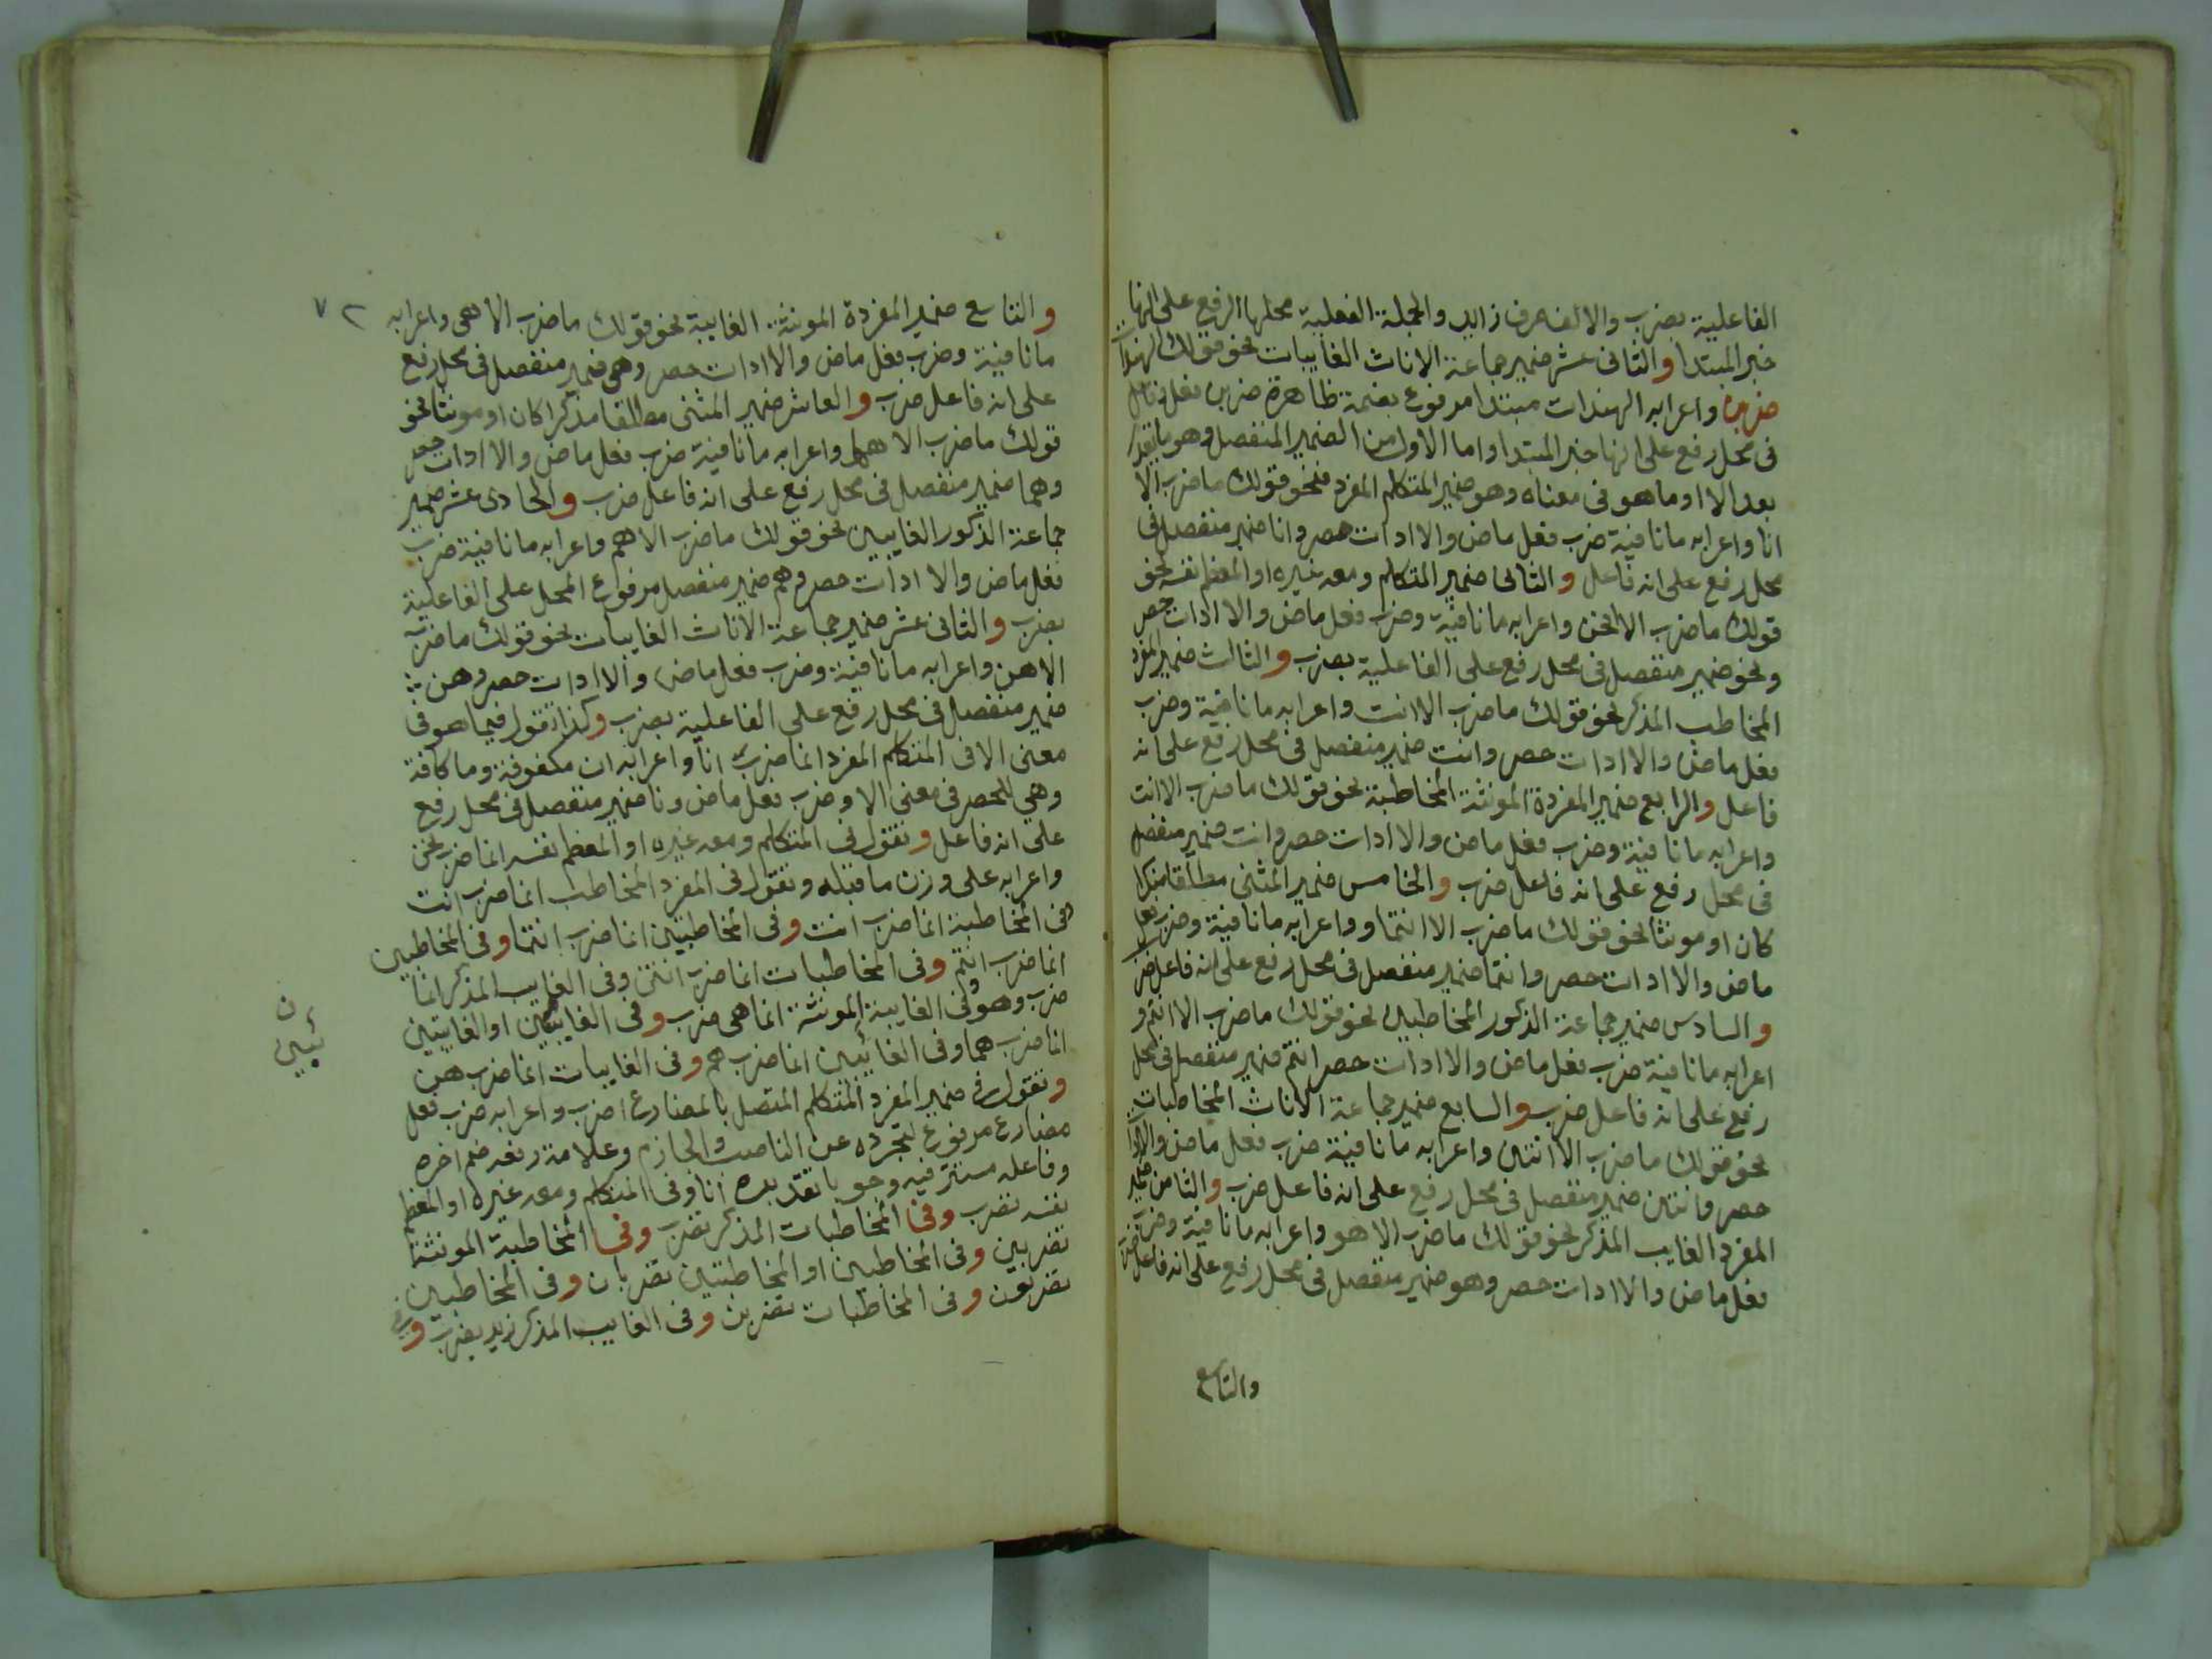 الفاعلية بضرب والالف حرف زايد والجملة الفعلية محلها الرفع على انها
خبر المبتدا والثانى عشر ضمير جماعة الاناث الغايبات نحو قولك الهندات
ضربن واعرابه الهندات مبتدا مرفوع بضمة ظاهرة ضربن فعل فاعل
فى محل رفع على انها خبر المبتدا واما الاول من الضمير المنفصل وهو ما يقع
بعد الا او ما هو فى معناه وهو ضمير المتكلم المفرد فنحو قولك ما ضرب الا
انا واعرابه ما نافية ضرب فعل ماض والا ادات حصر وانا ضمير منفصل فى
محل رفع على انه فاعل والثانى ضمير المتكلم ومعه غيره او المعظم نفسه نحو
قولك ما ضرب الا نحن واعرابه ما نافية وضرب فعل ماض والا ادات حصر
ونحن ضمير منفصل فى محل رفع على الفاعلية بضرب والثالث ضمير المفرد
المخاطب المذكر نحو قولك ما ضرب الا انت واعرابه ما نافية وضرب
فعل ماض والا ادات حصر وانت ضمير منفصل فى محل رفع على انه
فاعل والرابع ضمير المفردة المونثة المخاطبة نحو قولك ما ضرب الا انت
واعرابه ما نافية وضرب فعل ماض والا ادات حصر وانت ضمير منفصل
فى محل رفع على انه فاعل ضرب والخامس ضمير المثنى مطلقا مذكرا
كان او مونثا نحو قولك ما ضرب الا انتما وواعرابه ما نافية وضرب فعل
ماض والا ادات حصر وانتما ضمير منفصل فى محل رفع على انه فاعل ضرب
والسادس ضمير جماعة الذكور المخاطبين نحو قولك ما ضرب الا انتم و
اعرابه ما نافية ضرب فعل ماض والا ادات حصر انتم ضمير منفصل فى محل
رفع على انه فاعل ضرب والسابع ضمير جماعة الاناث المخاطبات
نحو قولك ما ضرب الا انتن واعرابه ما نافية ضرب فعل ماض والا ادات
حصر وانتن ضمير منفصل فى محل رفع على انه فاعل ضرب والثامن ضمير
المفرد الغايب المذكر نحو قولك ما ضرب الا هو واعرابه ما نافية وضرب
فعل ماض والا ادات حصر وهو ضمير منفصل فى محل رفع على انه فاعل ضرب
والتاسع
٧٢
والتاسع ضمير المفردة المونثة الغايبة نحو قولك ما ضرب الا هى واعرابه
ما نافية وضرب فعل ماض والا ادات حصر وهى ضمير منفصل فى محل رفع
على انه فاعل ضرب والعاشر ضمير المثنى مطلقا مذكرا كان او مونثا نحو
قولك ما ضرب الا هما واعرابه ما نافية ضرب فعل ماض والا ادات حصر
وهما ضمير منفصل فى محل رفع على انه فاعل ضرب والحادى عشر ضمير
جماعة الذكور الغايبين نحو قولك ما ضرب الا هم واعرابه ما نافية ضرب
فعل ماض والا ادات حصر وهم ضمير منفصل مرفوع المحل على الفاعلية
بضرب والثانى عشر ضمير جماعة الاناث الغايبات نحو قولك ما ضرب
الا هن واعرابه ما نافية وضرب فعل ماض والا ادات حصر وهن
ضمير منفصل فى محل رفع على الفاعلية بضرب وكذا تقول فيما هو فى
معنى الا فى المتكلم المفرد انما ضرب انا واعرابه ان مكفوفة وما كافة
وهى للحصر فى معنى الا وضرب فعل ماض ونا ضمير منفصل فى محل رفع
على انه فاعل وتقول فى المتكلم ومعه غيره او المعظم نفسه انما ضرب نحن
واعرابه على وزن ما قبله وتقول فى المفرد المخاطب انما ضرب انت
وفى المخاطبة انما ضرب انت وفى المخاطبتين انما ضرب انتما وفى المخاطبين
انما ضرب انتم وفى المخاطبات انما ضرب انتن وفى الغايب المذكر انما
ضرب وهو وفى الغايبة المونثة انما هى ضرب وفى الغايبين او الغايبتين
انما ضرب هما وفى الغائبين انما ضرب هم وفى الغايبات انما ضرب هن
وتقول فى ضمير المفرد المتكلم المتصل بالمضارع اضرب واعرابه ضرب فعل
مضارع مرفوع لتجرده عن الناصب والجازم وعلامة رفعه ضم اخره
وفاعله مستتر فيه وجوبا تقديره انا وفى المتكلم ومعه غيره او المعظم
نفسه نضرب وفى المخاطبات المذكر تضرب وفى المخاطبة المونثة
تضربين وفى المخاطبين او المخاطبتين تضربان وفى المخاطبين
تضربون وفى المخاطبات تضربن وفى الغايب المذكر زيد يضرب وفى
ن
ئبين